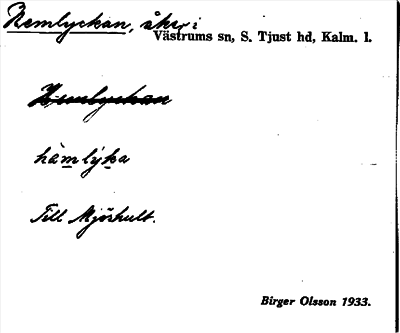 Hemlyckan, åker i
Västrums sn, S. Tjust hd, Kalm. l.
Hemlyckan
hàmlýka
Till Mjöshult.
Birger Olsson 1933.